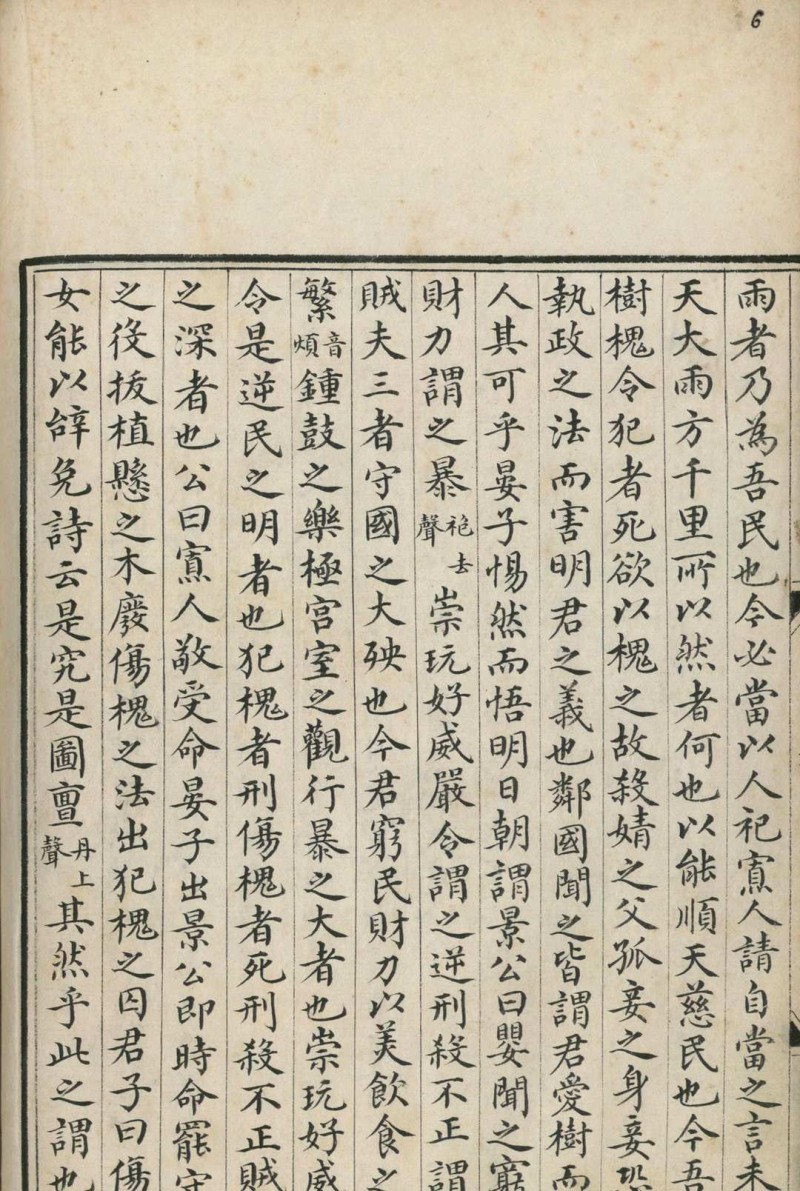 6
雨者乃為吾民也今必當以人祀寡人請自當之言未
天大雨方千里所以然者何也以能順天慈民也今吾
樹槐令犯者死欲以槐之故殺婧之父孤妾之身妾恐
執政之法而害明君之義也鄰國聞之皆謂君愛樹而
人其可乎晏子惕然而悟明日朝謂景公曰嬰聞之窮
財力謂之暴袍去聲崇玩好威嚴令謂之逆刑殺不正謂
賊夫三者守國之大殃也今君窮民財力以美飲食之
繁音煩鍾鼓之樂極宮室之觀行暴之大者也崇玩好威
令是逆民之明者也犯槐者刑傷槐者死刑殺不正賊
之深者也公曰寡人敬受命晏子出景公即時命罷守
之役拔植懸之木廢傷槐之法出犯槐之囚君子曰傷
女能以辝免詩云是究是圖亶丹上聲其然乎此之謂也